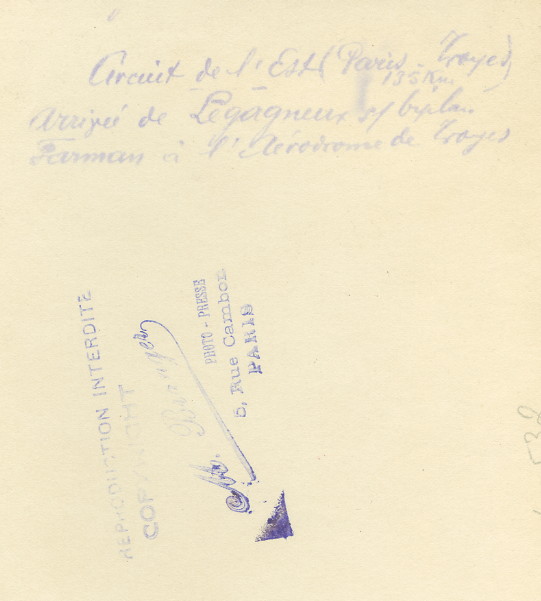 Circuit de l'Est (Paris - Troyes)
135 Km
Arrivée de Legagneux s/ biplan
Farman à l'Aérodrome de Troyes
REPRODUCTION INTERDITE
COPYRIGHT
PHOTO - PRESSE
5, Rue Cambon
PARIS
538